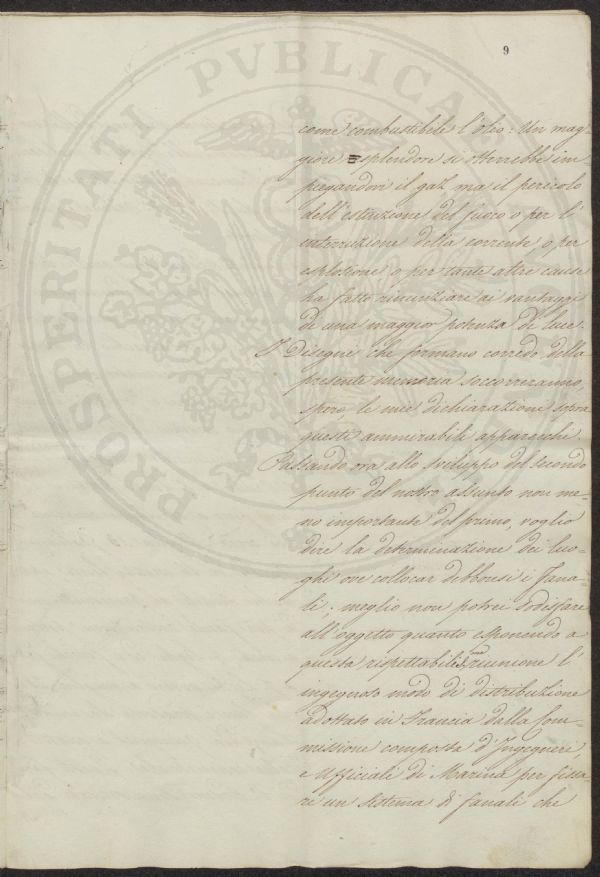 9
PROSPERITATI PVBLICAE
come combustibile l'olio: Un mag-
giore splendore si otterrebbe im
piegandovi il gaz ma il pericolo
dell'estinzione del fuoco o per l'
interruzione della corrente o per
esplosione o per tante altre cause
ha fatto rinunziare ai vantaggi
di una maggior potenza di luce.
I Disegni che formano corredo della
presente memoria soccorreranno,
spero, le mie dichiarazioni sopra
questi ammirabili apparecchi
Passando ora allo sviluppo del secondo
punto del nostro assunto non me-
no importante del primo, voglio
dire la determinazione dei luo-
ghi ove collocar debbonsi i Fana-
li; meglio non potrei sodisfare
all'oggetto quanto esponendo a
questa rispettabilis.ma riunione l'
ingegnoso modo di distribuzione
adottato in Francia dalla Com-
missione composta d'Ingegneri,
e Ufficiali di Marina per fissa-
re un sistema di fanali che